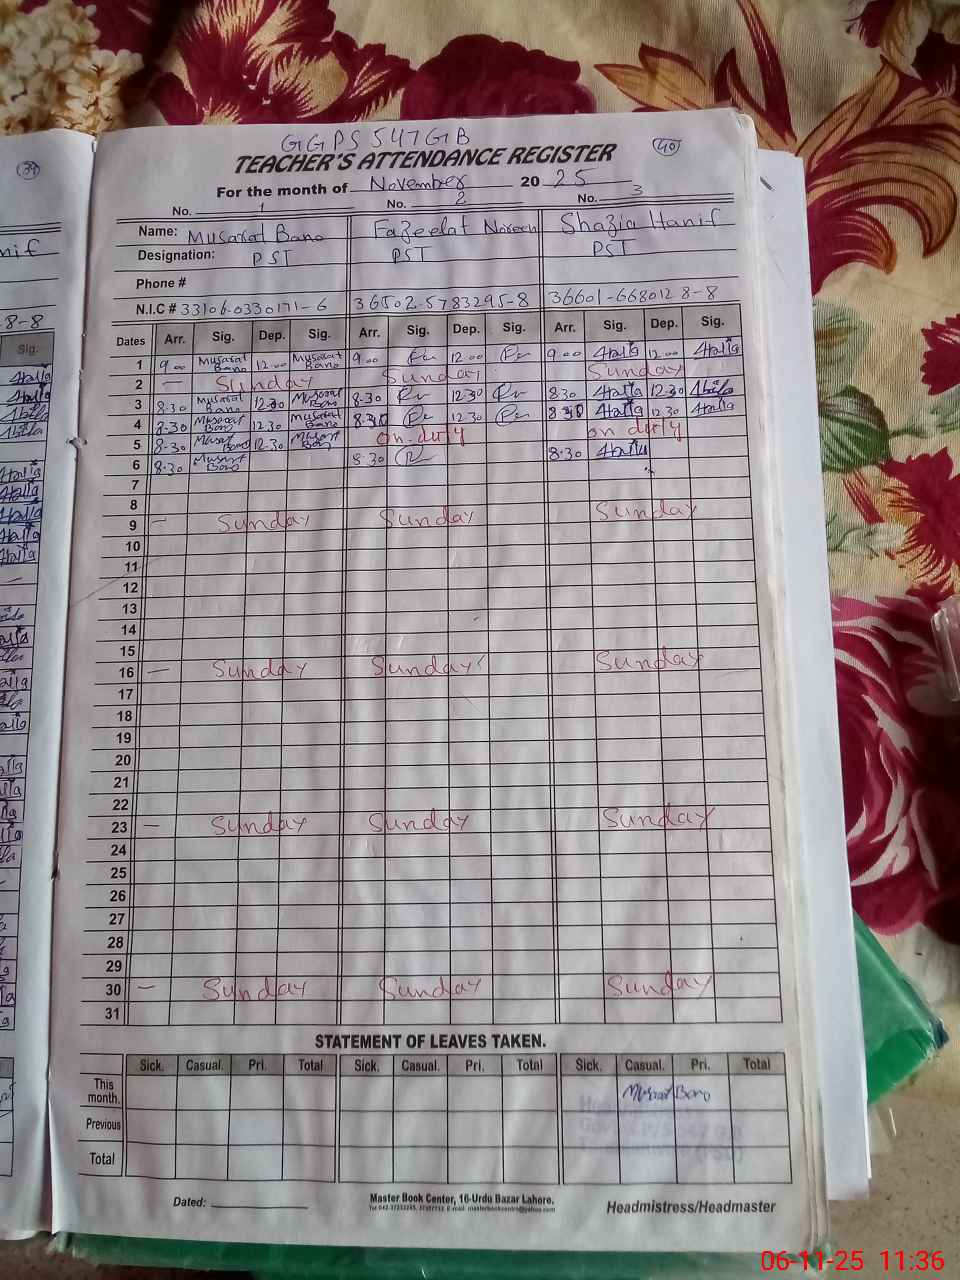 39
GGPS 547GB
40
TEACHER'S ATTENDANCE REGISTER
For the month of November 20 25
No. 1 No. 2 No. 3
Name: Musarat Bano Fazeelat Noreen Shazia Hanif
Designation: PST PST PST
Phone #
N.I.C # 33106-0330171-6 36502-5783295-8 36601-668012 8-8
Dates Arr. Sig. Dep. Sig. Arr. Sig. Dep. Sig. Arr. Sig. Dep. Sig.
1 9.00 Musarat Bano 12.00 Musarat Bano 9.00 12.00 9.00 12.00
2 — Sunday Sunday Sunday
3 8.30 Musarat Bano 12.30 Musarat Bano 8.30 12.30 8.30 12.30
4 8.30 Musarat Bano 12.30 Musarat Bano 8.30 12.30 8.30 12.30
5 8.30 Musarat Bano 12.30 Musarat Bano on duty on duty
6 8.30 Musarat Bano 8.30 8.30
7
8
9 — Sunday Sunday Sunday
10
11
12
13
14
15
16 — Sunday Sunday Sunday
17
18
19
20
21
22
23 — Sunday Sunday Sunday
24
25
26
27
28
29
30 — Sunday Sunday Sunday
31
STATEMENT OF LEAVES TAKEN.
Sick. Casual. Pri. Total Sick. Casual. Pri. Total Sick. Casual. Pri. Total
This month. Musarat Bano
Previous
Total
Dated:
Master Book Center, 16-Urdu Bazar Lahore.
Headmistress/Headmaster
nif
8-8
Sig.
06-11-25 11:36